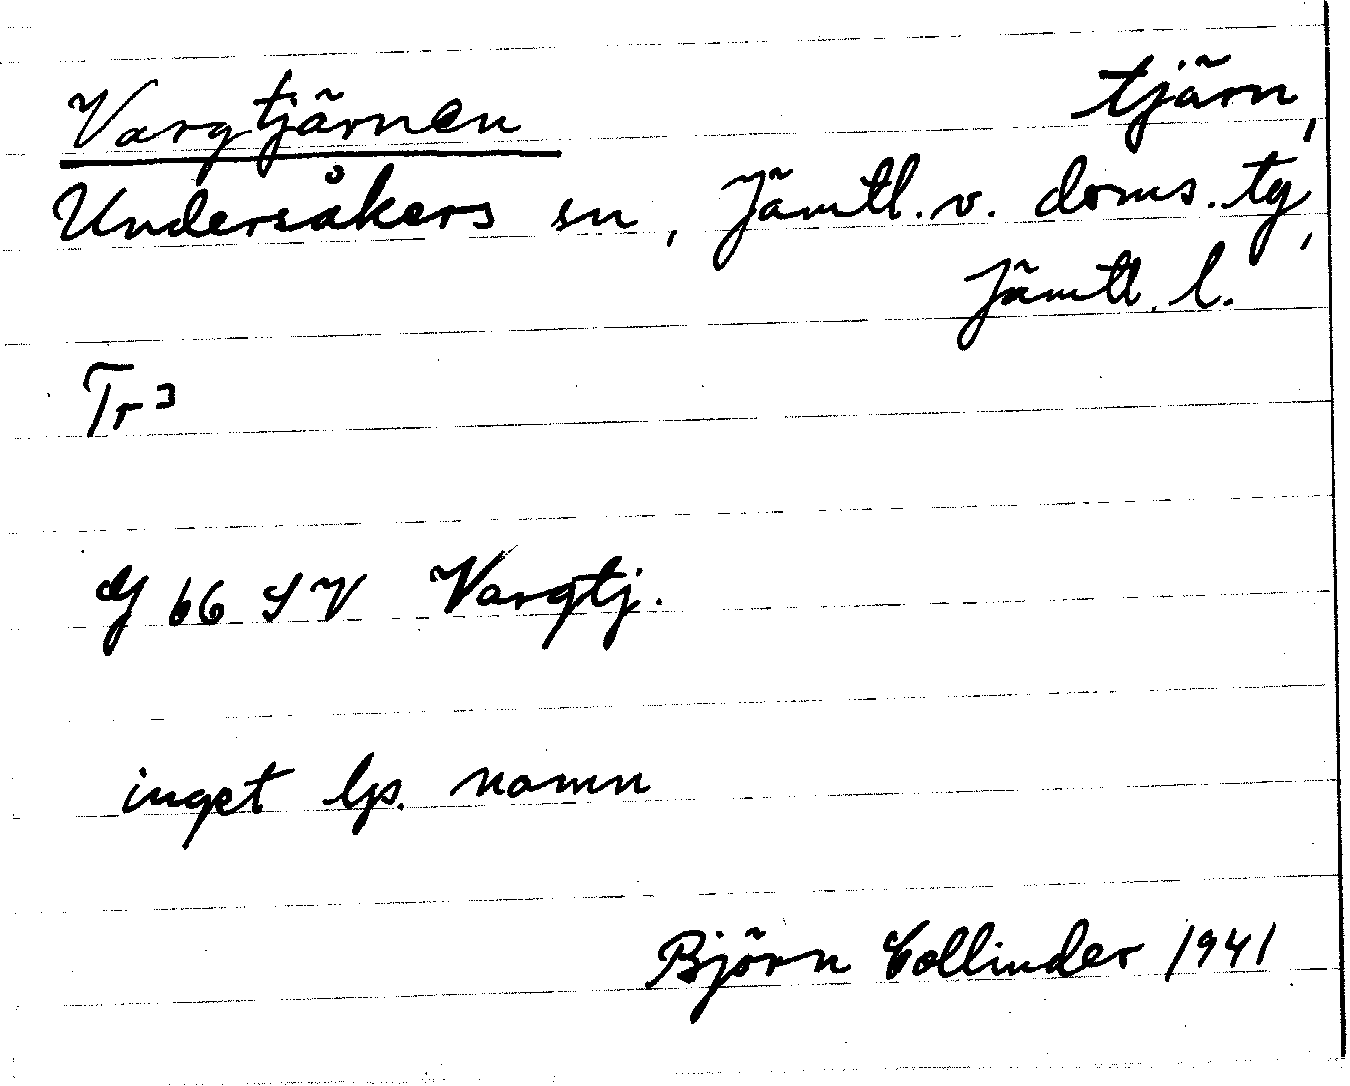 Vargtjärnen tjärn,
Undersåkers sn, Jämtl. v. doms. tg,
Jämtl. l.
Tr³
G 66 SV Vargtj.
inget lp. namn
Björn Collinder 1941